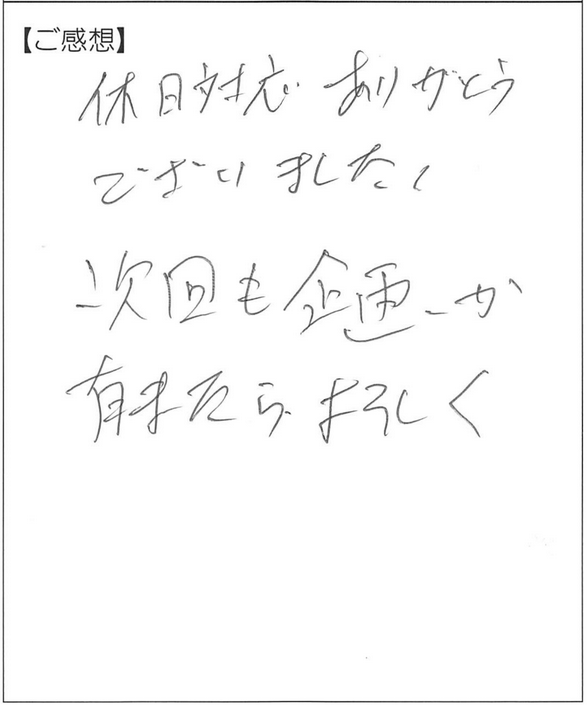 【ご感想】
休日対応ありがとう
ございました、
次回も企画か
有ましたらよろしく